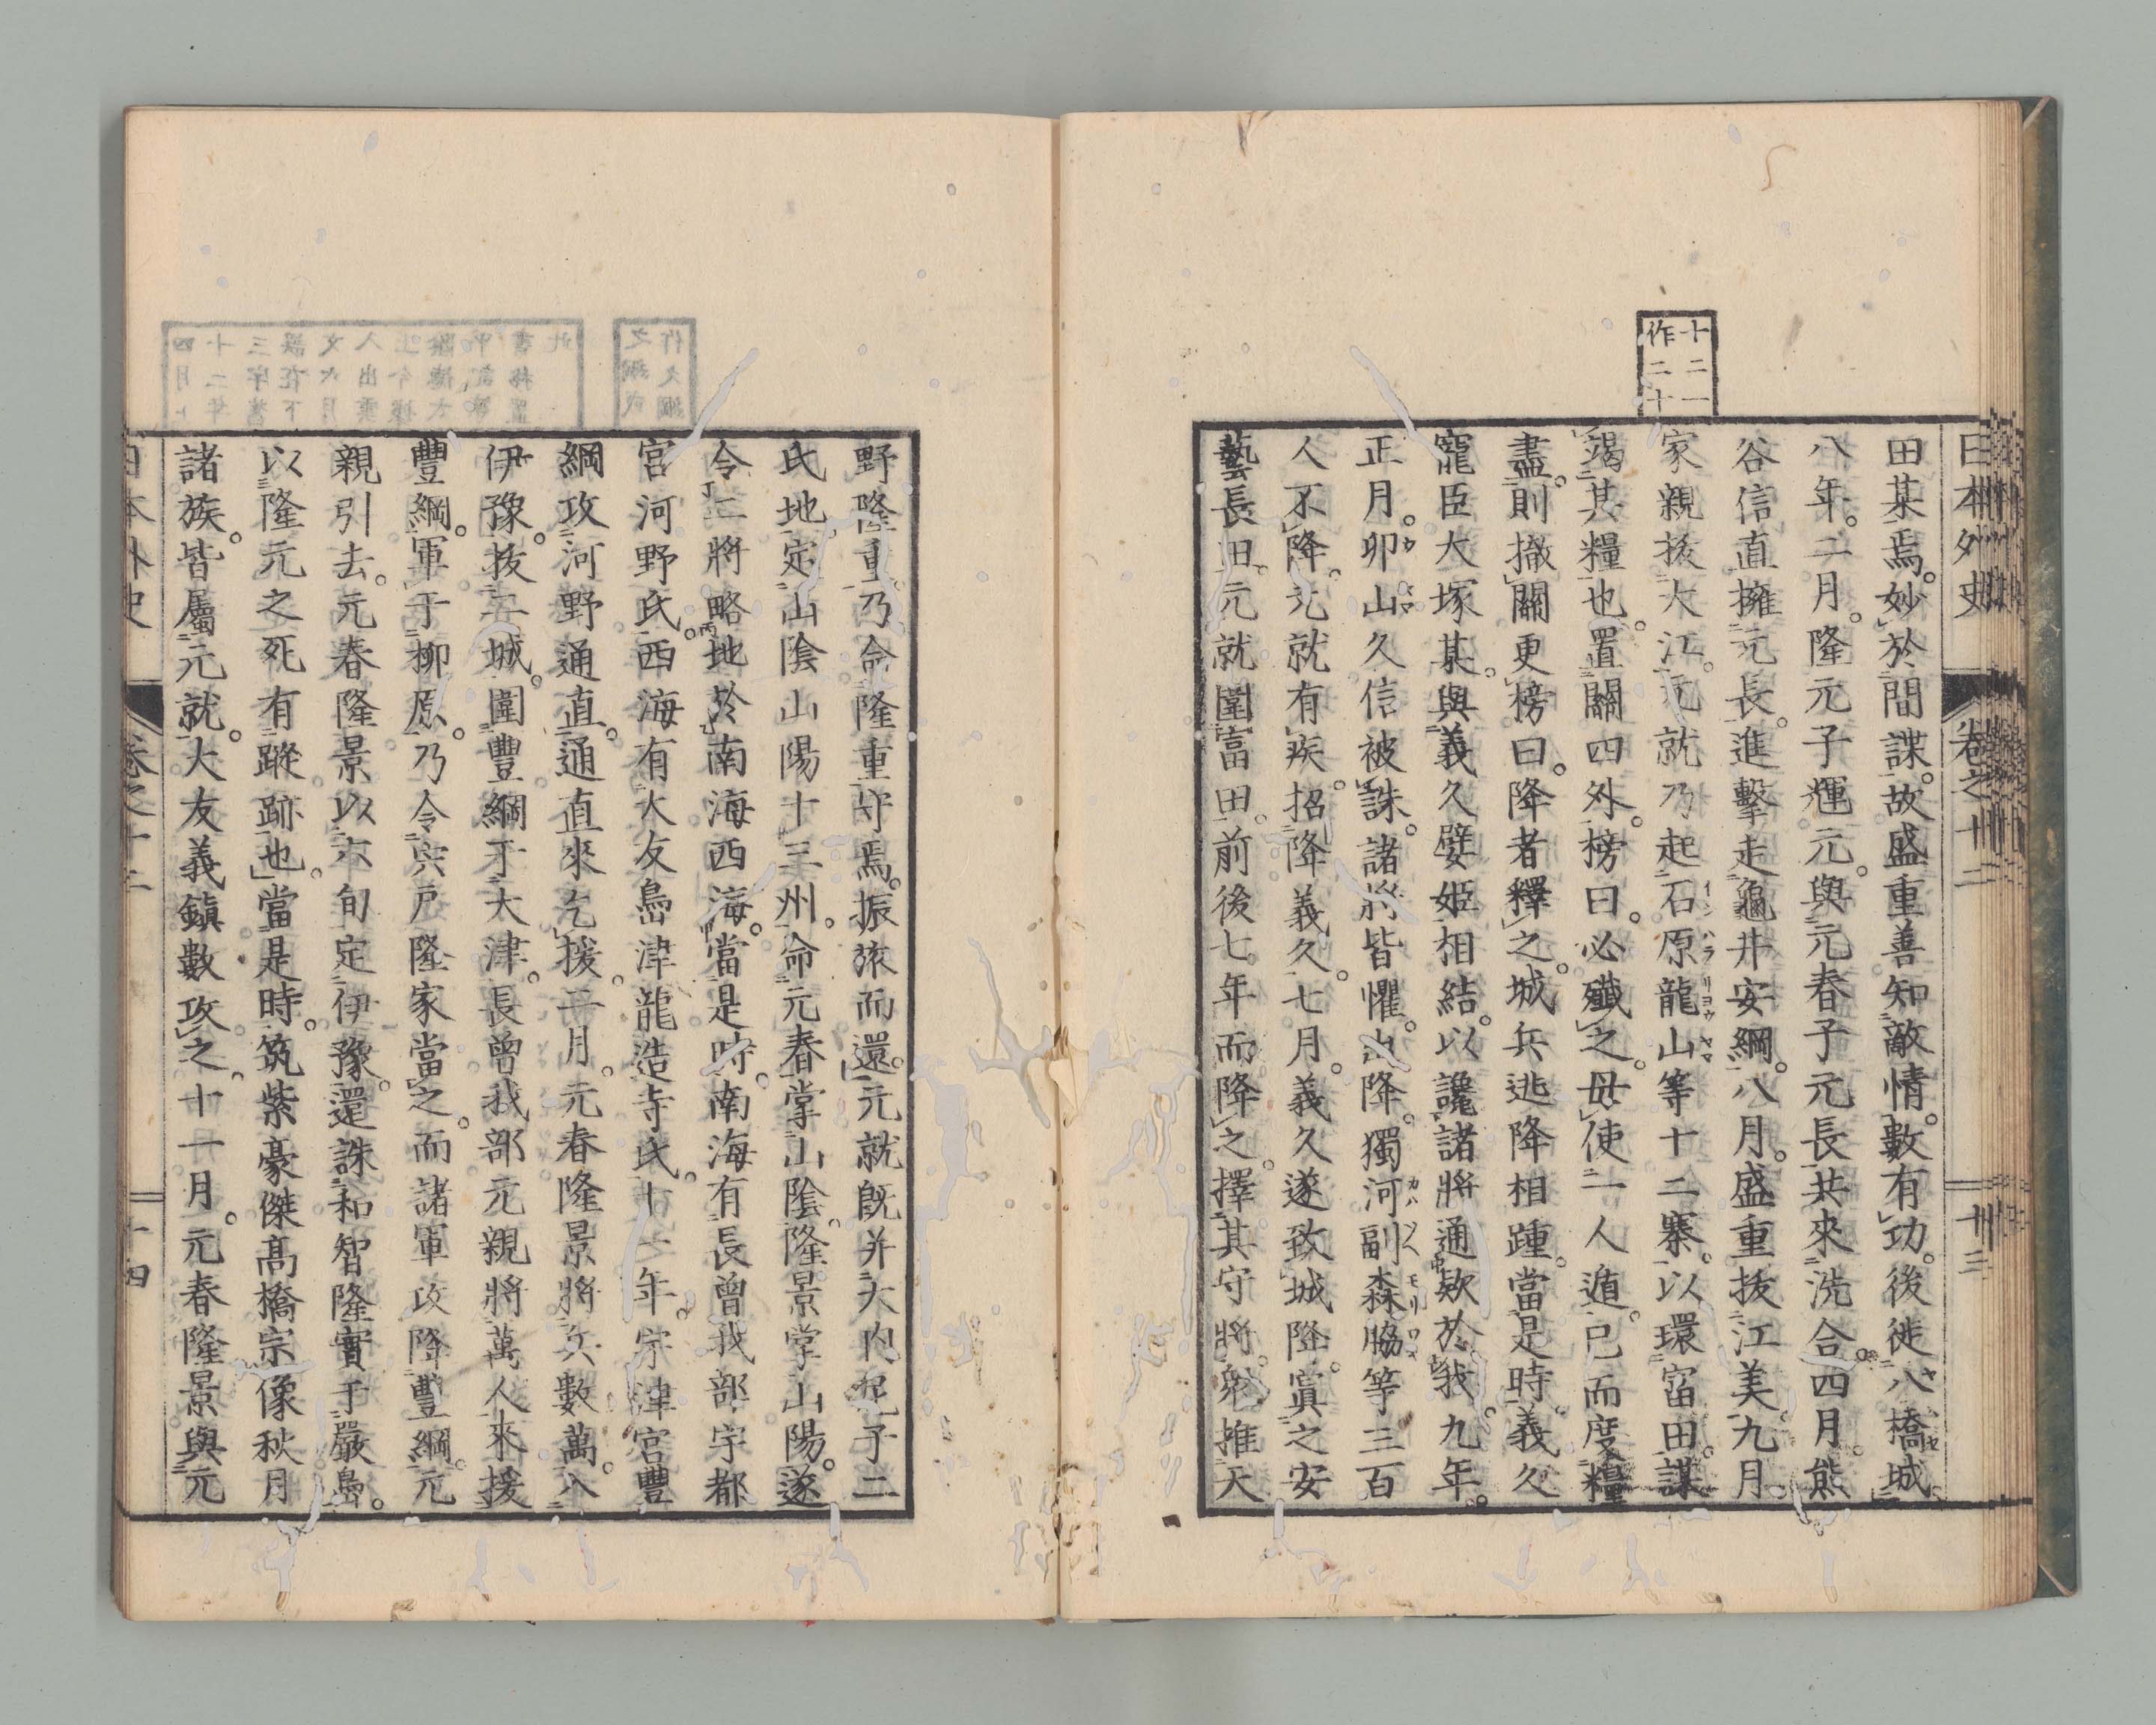 日本外史
卷之十二
十三
十二一
作二十
田某焉。妙於間諜。故盛重善知敵情。數有功。後徙八橋城。
八年。二月。隆元子輝元。與元春子元長共來洗合。四月。熊
谷信直擁元長。進擊走龜井安綱。八月。盛重拔江美。九月。
家親拔大江。元就乃起石原龍山等十二寨。以環富田。謀
竭其糧也。置關四外。榜曰。必殲之。毋使一人遁。已而度糧
盡。則撤關更榜曰。降者釋之。城兵逃降相踵。當是時。義久
寵臣大塚某。與義久嬖姬相結。以讒諸將通欵於我。九年。
正月。卯山久信被誅。諸將皆懼。出降。獨河副森脇等三百
人不降。元就有疾。招降義久。七月。義久遂致城降。寘之安
藝長田。元就圍富田。前後七年而降之。擇其守將。衆推天
野隆重。乃命隆重守焉。振旅而還。元就既并大内尼子二
氏地。定山陰山陽十三州。命元春掌山陰。隆景掌山陽。遂
令二將略地於南海西海。當是時。南海有長曾我部宇都
宮河野氏。西海有大友島津龍造寺氏。十一年。宇津宮豐
綱攻河野通直。通直來乞援。二月。元春隆景將兵數萬。入
伊豫。拔二城。圍豐綱于大津。長曾我部元親將萬人來援
豐綱。軍于柳原。乃令宍戶隆家當之。而諸軍攻降豐綱。元
親引去。元春隆景以六旬定伊豫。還誅和智隆實于嚴島。
以隆元之死有蹤跡也。當是時。筑紫豪傑高橋宗像秋月
諸族。皆屬元就。大友義鎭數攻之。十一月。元春隆景與元
日本外史
卷之十二
十四